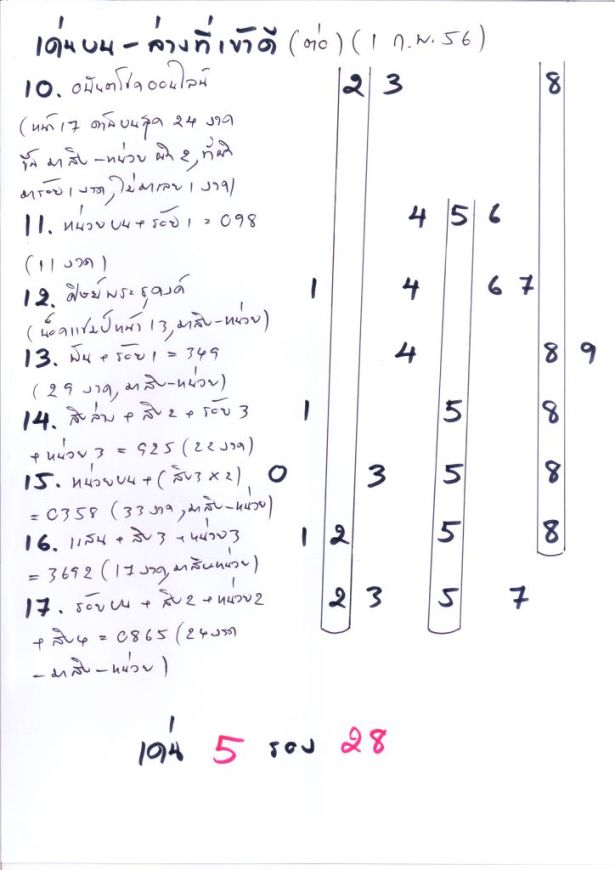 เด่นบน - ล่างที่เข้าดี (ต่อ) (1 ก.พ. 56)
10. อนันตโชคออนไลน์ 2 3 8
(หน้า 17 24 งวด
มาสิบ-หน่วย ผิด 2,
มาร้อย 1 งวด, ไม่มาเลย 1 งวด)
11. หน่วยบน + ร้อย 1 = 098 4 5 6
(11 งวด)
12. ศิษย์พระธุดงค์ 1 4 6 7
(น็อคแชมป์หน้า 13, มาสิบ-หน่วย)
13. พัน + ร้อย 1 = 349 4 8 9
(29 งวด, มาสิบ-หน่วย)
14. สิบล่าง + สิบ 2 + ร้อย 3 1 5 8
+ หน่วย 3 = 925 (22 งวด)
15. หน่วยบน + (สิบ 3 x 2) 0 3 5 8
= 0358 (33 งวด, มาสิบ-หน่วย)
16. แสน + สิบ 3 + หน่วย 3 1 2 5 8
= 3692 (17 งวด, มาสิบหน่วย)
17. ร้อยบน + สิบ 2 + หน่วย 2 2 3 5 7
+ สิบ 4 = 0865 (24 งวด
- มาสิบ - หน่วย)
เด่น 5 รอง 28